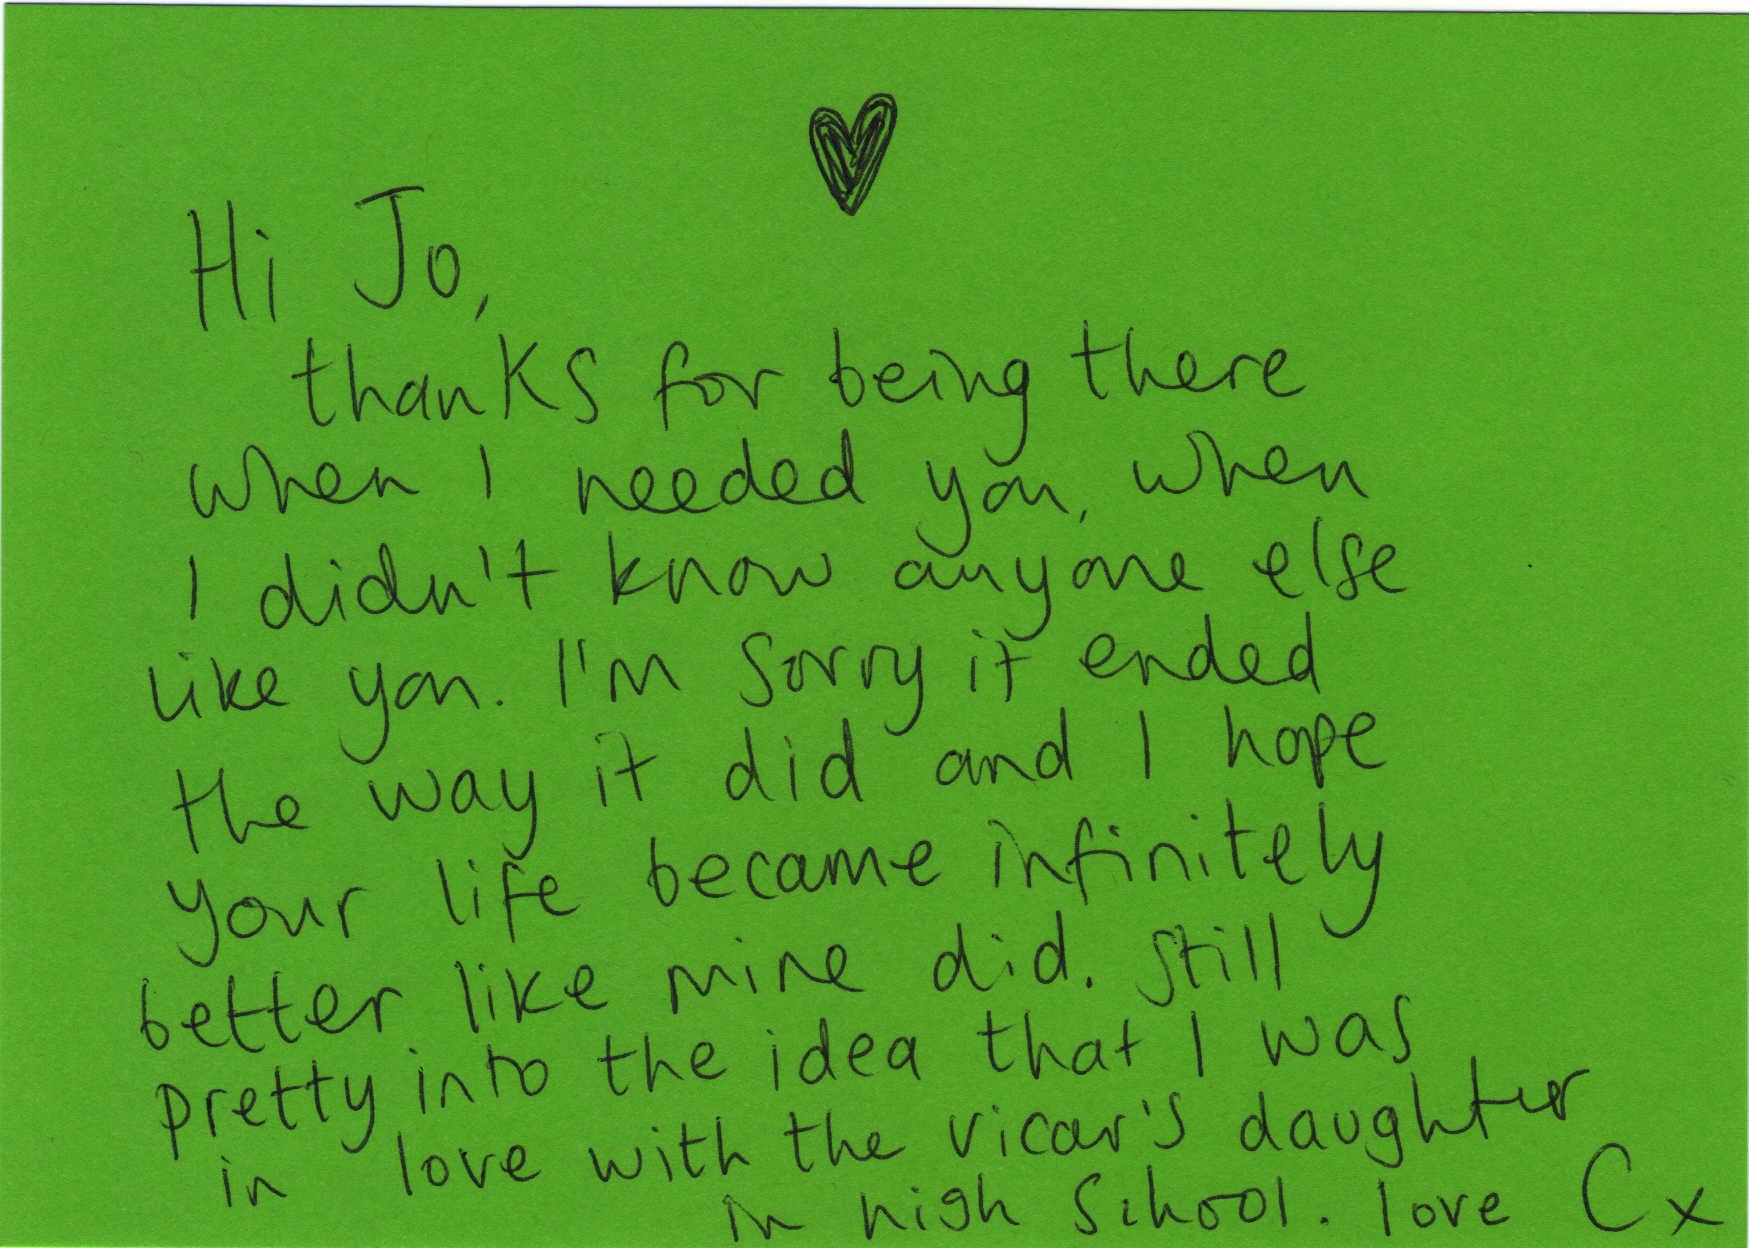 Hi Jo,
thanks for being there
when I needed you, when
I didn't know anyone else
like you. I'm sorry it ended
the way it did and I hope
your life became infinitely
better like mine did. still
pretty into the idea that I was
in love with the vicar's daughter
in high school. love Cx